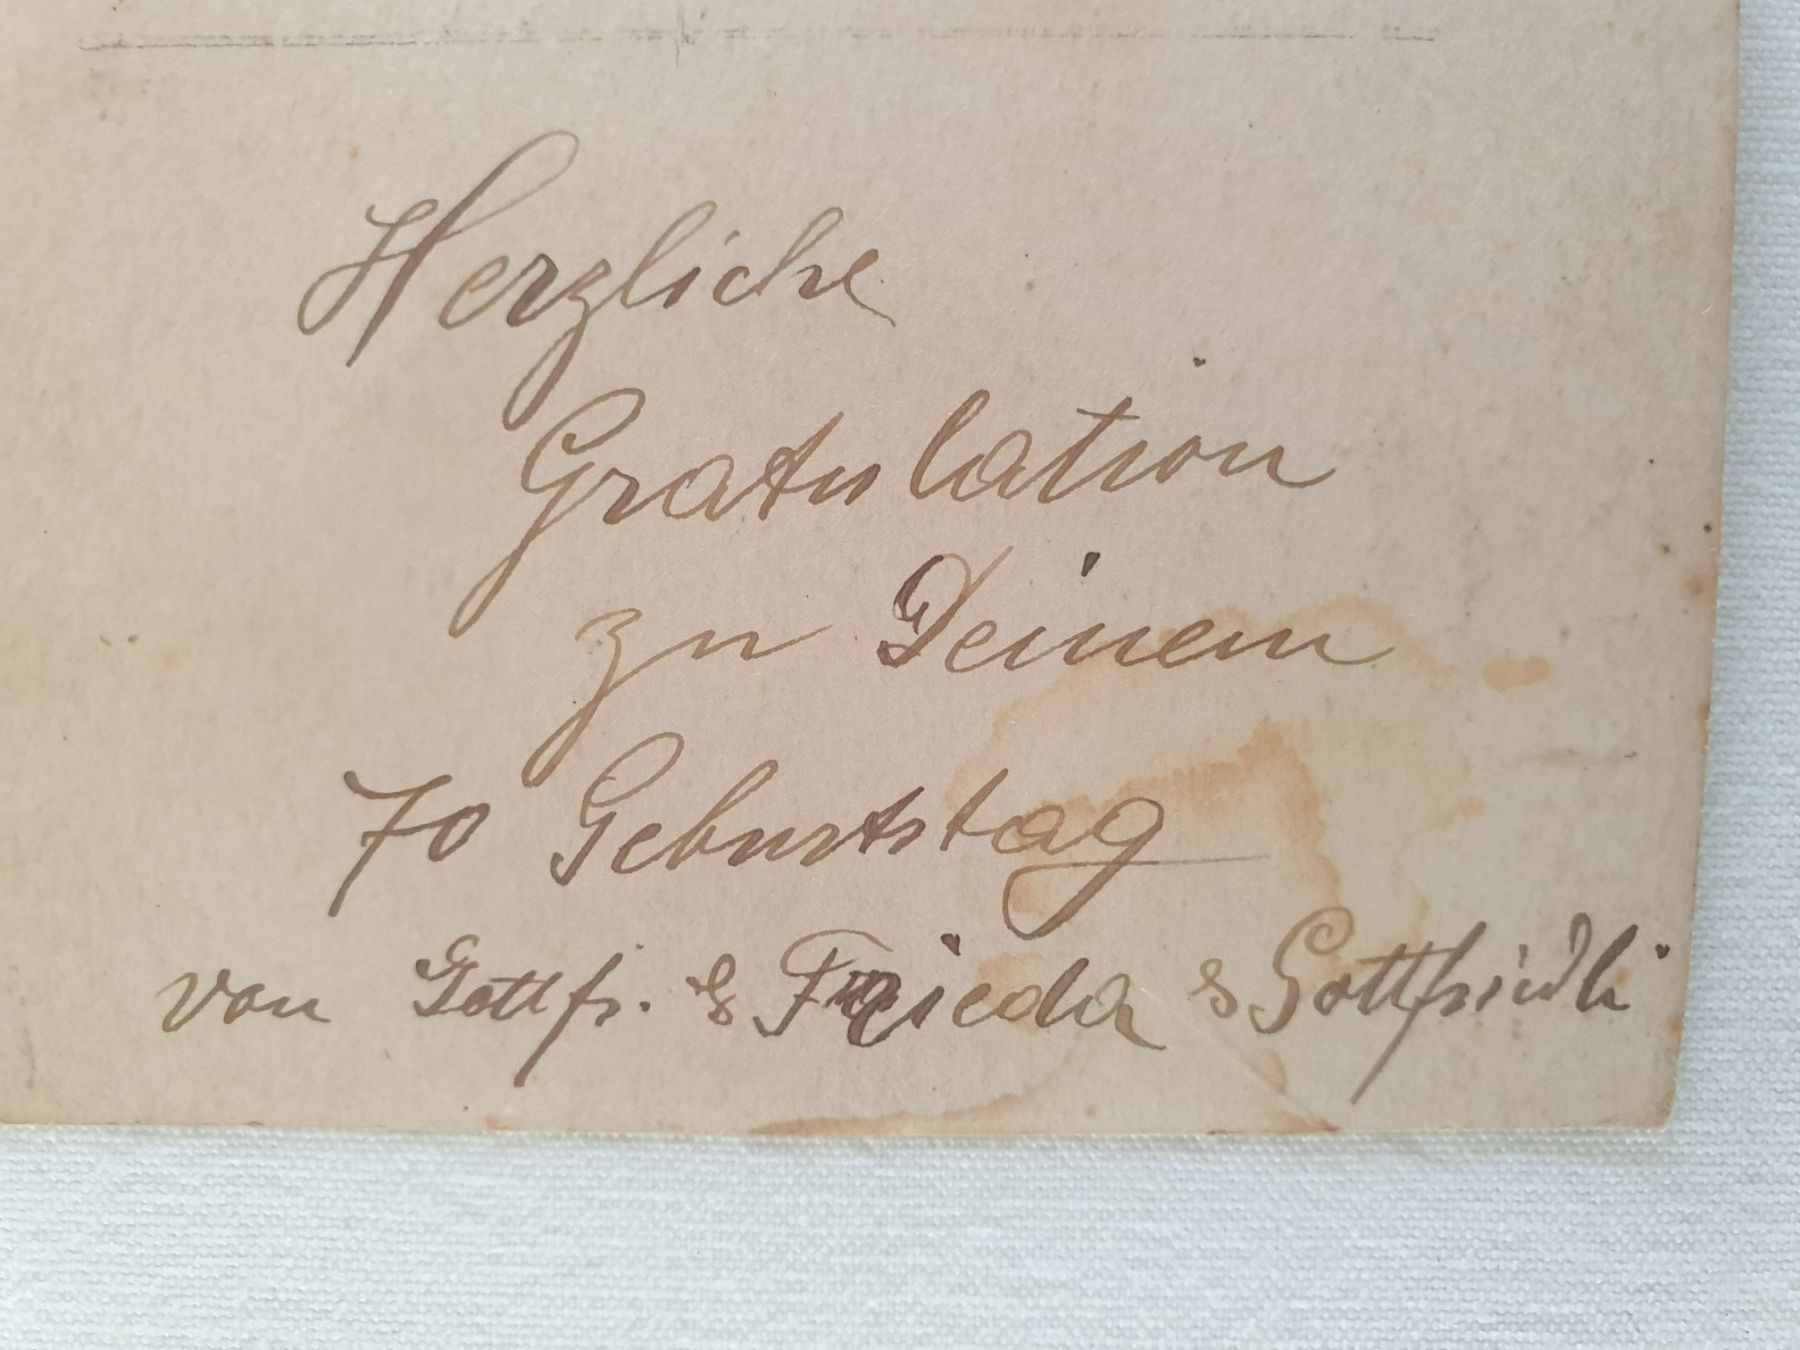 Herzliche
Gratulation
zu Deinem
70 Geburtstag
von Gottfr. & Frieda & Gottfriedli